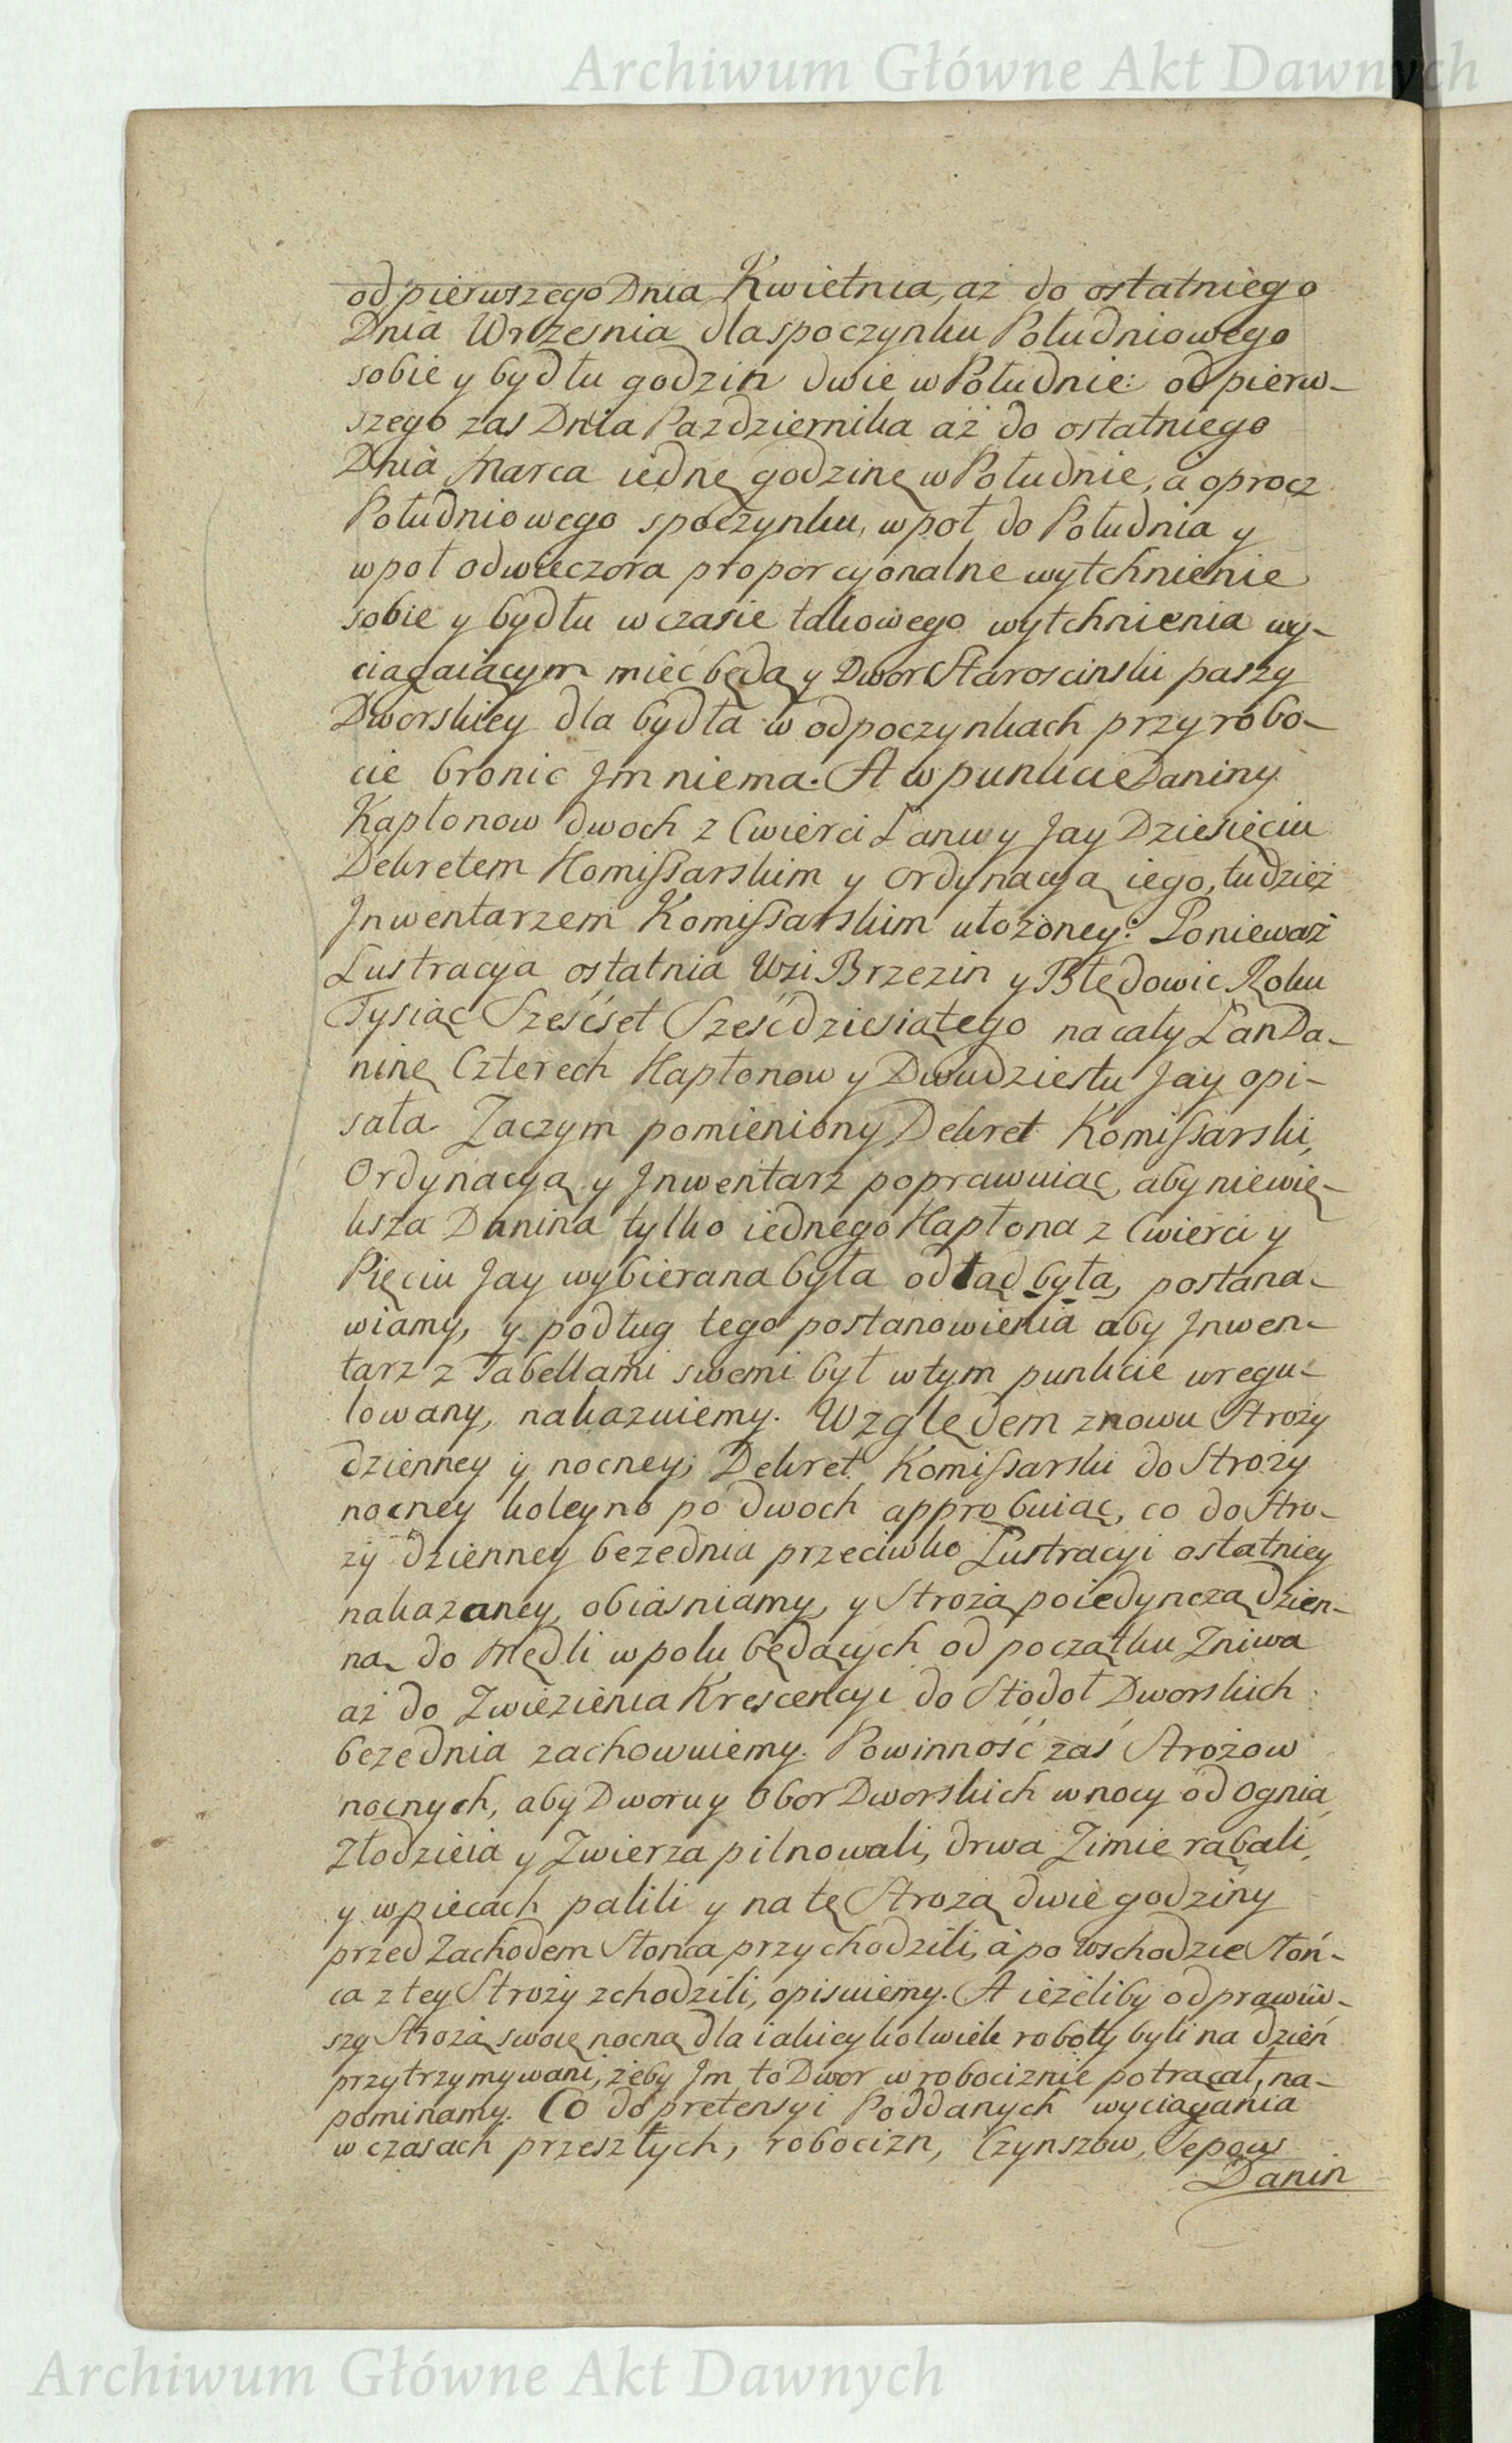 Archiwum Główne Akt Dawnych
od pierwszego Dnia Kwietnia, aż do ostatniego
Dnia Wrzesnia dla spoczynku Południowego
sobie y bydłu godzin dwie w Południe: od pierw-
szego zas Dnia Pazdziernika aż do ostatniego
Dnia Marca iednę godzinę w Południe, a oprocz
Południowego spoczynku, wpoł do Południa y
wpoł odwieczora proporcyonalne wytchnienie
sobie y bydłu w czasie takowego wytchnienia wy-
ciągaiącym mieć będą y Dwor Starosciński paszy
Dworskiey dla bydła w odpoczynkach przy robo-
cie bronić Jm niema. A w punkcie Daniny
Kapłonow dwoch z Cwierci Łanu y Jay Dziesięciu
Dekretem Komissarskim y Ordynacyą iego, tudzież
Jnwentarzem Komissarskim ułożoney: Ponieważ
Lustracya ostatnia Wsi Brzezin y Błędowic Roku
Tysiąc Sześćset Sześćdziesiątego na cały Łan Da-
ninę Czterech Kapłonow y Dwudziestu Jay opi-
sała. Zaczym pomieniony Dekret Komissarski,
Ordynacyą y Jnwentarz poprawuiąc, aby niewię-
ksza Danina tylko iednego Kapłona z Cwierci y
Pięciu Jay wybierana była odtąd była, postana-
wiamy, y podług tego postanowienia aby Jnwen-
tarz z Tabellami swemi był w tym punkcie uregu-
lowany, nakazuiemy. Względem znowu Stroży
dzienney y nocney, Dekret Komissarski do Stroży
nocney koleyno po dwoch approbuiąc, co do Stro-
ży dzienney bezednia przeciwko Lustracyi ostatniey
nakazaney, obiaśniamy, y Strożą poiedynczą dzien-
ną do Mędli w polu będących od początku Zniwa
aż do Zwiezienia Krescencyi do Stodoł Dworskich
bezednia zachowuiemy. Powinność zaś Strożow
nocnych, aby Dworu y Obor Dworskich w nocy od Ognia,
Złodzieia y Zwierza pilnowali, drwa Zimie rąbali,
y w piecach palili y na tę Strożą dwie godziny
przed Zachodem Słońca przychodzili, a po Wschodzie Słoń-
ca z tey Stroży zchodzili, opisuiemy. A ieżeliby odprawiw-
szy Strożą swoię nocną dla iakieykolwiek roboty byli na dzień
przytrzymywani, żeby Jm to Dwor w robociznie potrącał, na-
pominamy. Co do pretensyi Poddanych wyciągania
w czasach przeszłych, robocizn, Czynszow, Sepow
Danin
Archiwum Główne Akt Dawnych